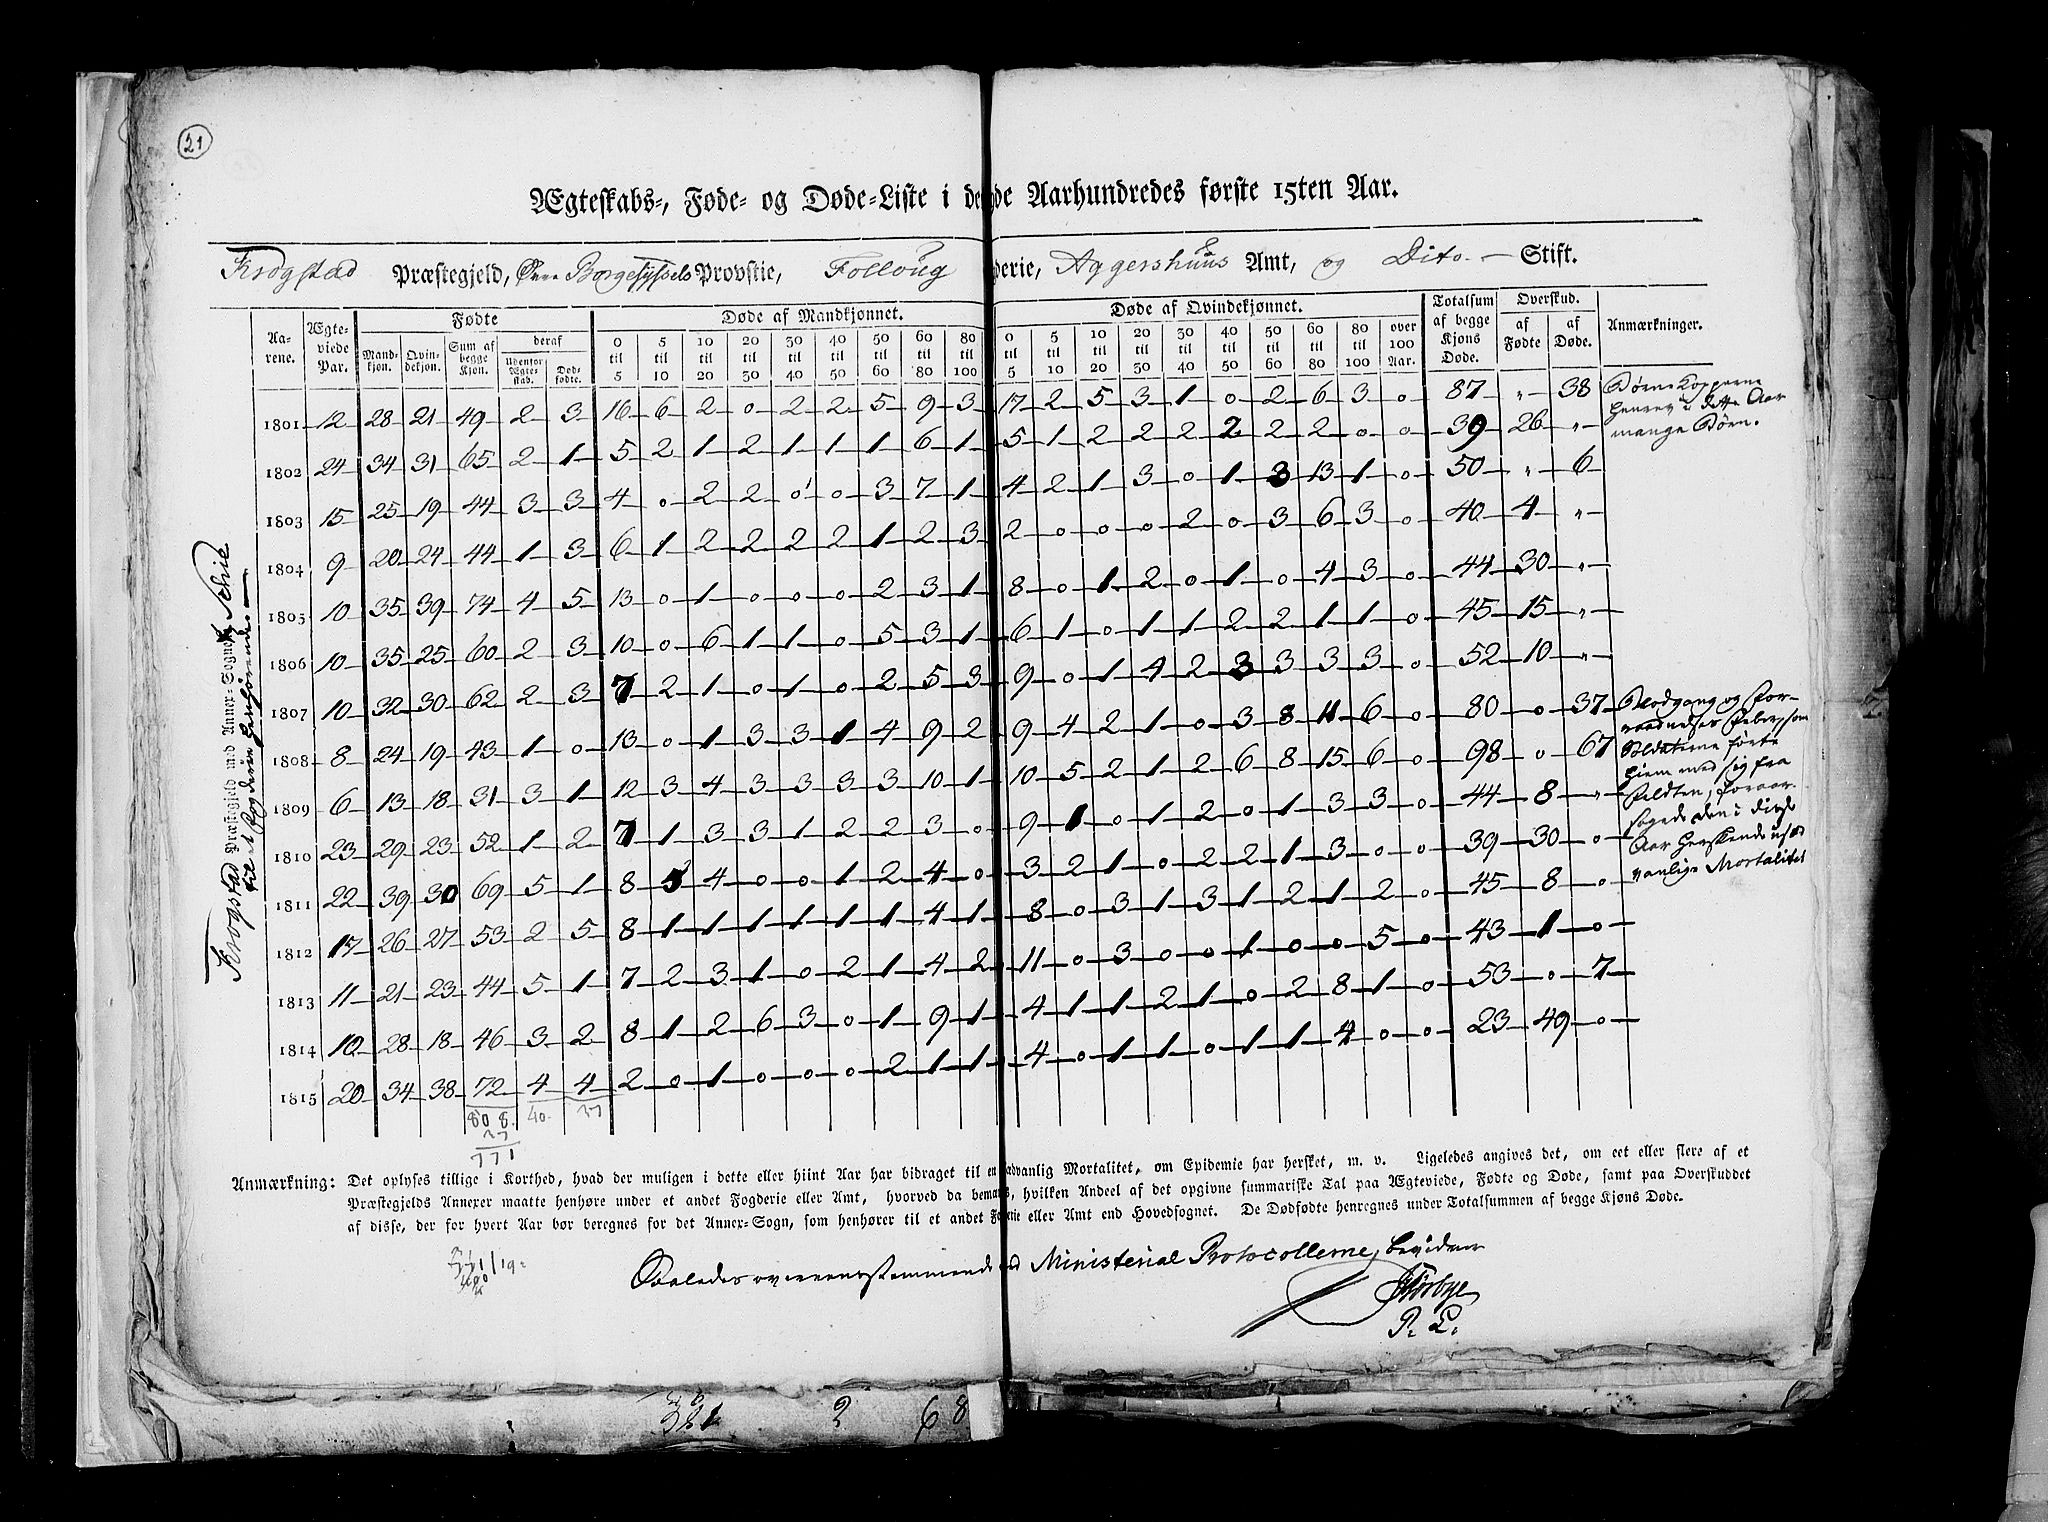 21
Ægteskabs-, Føde- og Døde-Liste i de de Aarhundredes første 15ten Aar.
Krogstad Præstegjeld, Øvre Borgesyssels Provstie, Folloug derie, Aggershuus Amt, og Dito Stift.
Aarene. Ægteviede Par. Fødte Døde af Mandkjønnet. Døde af Qvindekjønnet. Totalsum af begge Kjøns Døde. Overskud. Anmærkninger.
Mandkjøn. Qvindekjøn. Sum af begge Kjøn. deraf Udenfor Ægteskab. Dødfødte. 0 til 5 5 til 10 10 til 20 20 til 30 30 til 40 40 til 50 50 til 60 60 til 80 80 til 100 0 til 5 5 til 10 10 til 20 20 til 30 30 til 40 40 til 50 50 til 60 60 til 80 80 til 100 over 100 Aar. af Fødte af Døde.
1801 12 28 21 49 2 3 16 6 2 0 2 2 5 9 3 17 2 5 3 1 0 2 6 3 0 87 " 38
1802 24 34 31 65 2 1 5 2 1 2 1 1 1 6 1 5 1 2 2 2 2 2 2 0 0 39 26 "
1803 15 25 19 44 3 3 4 0 2 2 0 0 3 7 1 4 2 1 3 0 1 3 13 1 0 50 " 6
1804 9 20 24 44 1 3 6 1 2 2 2 2 1 2 3 2 0 0 0 2 0 3 6 3 0 40 4 "
1805 10 35 39 74 4 5 13 0 1 0 0 0 2 3 1 8 0 1 2 0 1 0 4 3 0 44 30 "
1806 10 35 25 60 2 3 10 0 6 1 1 0 5 3 1 6 1 0 1 1 2 2 1 1 0 45 15 "
1807 10 32 30 62 2 3 7 2 1 0 1 0 2 5 3 9 0 1 4 2 3 3 3 3 0 52 10 "
1808 8 24 19 43 1 0 13 0 1 3 3 1 4 9 2 9 4 2 1 0 3 8 11 6 0 80 0 37
1809 6 13 18 31 3 1 12 3 4 3 3 3 3 10 1 10 5 2 1 2 6 8 15 6 0 98 0 67
1810 23 29 23 52 1 2 7 1 3 3 1 2 2 3 0 9 1 0 1 2 0 1 3 3 0 44 8 "
1811 22 39 30 69 5 1 8 5 4 0 0 1 2 4 0 3 2 1 0 2 2 1 3 0 0 39 30 0
1812 17 26 27 53 2 5 8 1 1 1 1 1 1 4 1 8 0 3 1 3 1 2 1 2 0 45 8 0
1813 11 21 23 44 5 1 7 2 3 1 0 2 1 4 2 11 0 3 0 0 1 0 0 5 0 43 1 0
1814 10 28 18 46 3 2 8 1 2 6 3 0 1 9 1 4 1 1 2 1 0 2 8 1 0 53 0 7
1815 20 34 38 72 4 4 2 0 1 0 0 0 2 1 1 4 0 1 1 0 1 1 4 0 0 23 49 0
808. 40. 37
37
771
Børne Kopperne
henrev i dette Aar
mange Børn.
Blodgang og For-
raadnelses Feber, som
Soldaterne førte
hiem med sig fra
Feldten, foraar-
sagede den i disse
Aar herskende usæd
vanlige Mortalitet
Krogstad Præstegjeld med Annex-Sognet Schie
til et Fogderie henhørende
Anmærkning: Det oplyses tillige i Korthed, hvad der muligen i dette eller hiint Aar har bidraget til en sædvanlig Mortalitet, om Epidemie har hersket, m. v. Ligeledes angives det, om eet eller flere af et
Præstegjelds Annexer maatte henhøre under et andet Fogderie eller Amt, hvorved da bemærkes, hvilken Andeel af det opgivne summariske Tal paa Ægteviede, Fødte og Døde, samt paa Overskuddet
af disse, der for hvert Aar bør beregnes for det Annex-Sogn, som henhører til et andet Fogderie eller Amt end Hovedsognet. De Dødfødte henregnes under Totalsummen af begge Kjøns Døde.
Saaledes overeensstemmende med Ministerial Protocollerne, bevidner
P. L.
2 68